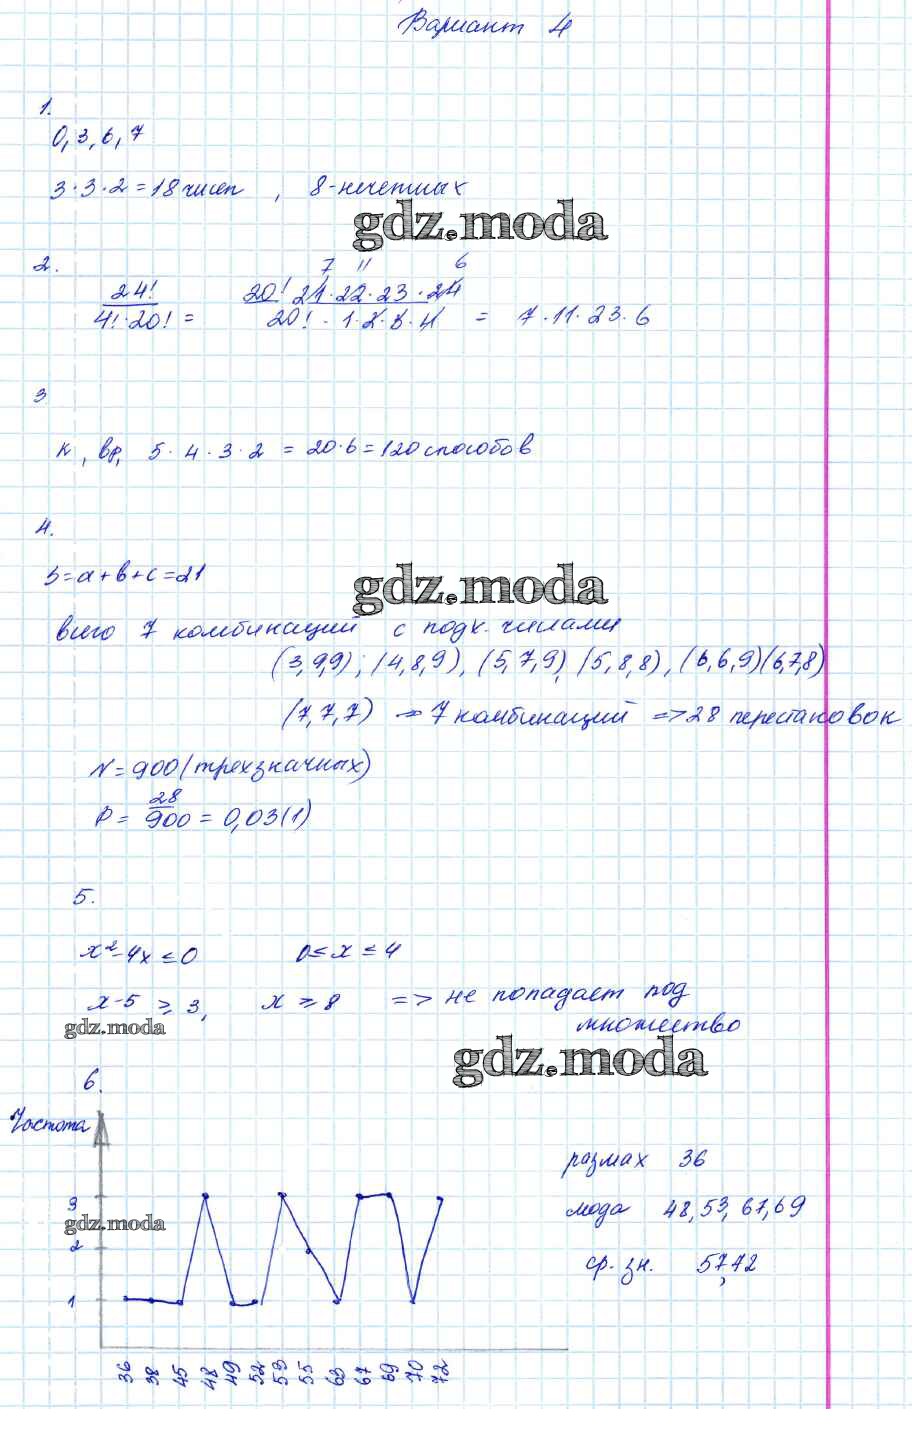 Вариант 4
1.
0, 3, 6, 7
3·3·2 = 18 чисел , 8-нечетных
gdz.moda
2.
7 11 6
24! 20! 21·22·23·24
4!·20! = 20!·1·2·3·4 = 7·11·23·6
3
К, вр, 5·4·3·2 = 20·6 = 120 способов
4.
S=a+b+c=21
gdz.moda
всего 7 комбинаций с подх. числами
(3,9,9); (4,8,9), (5,7,9), (5,8,8), (6,6,9)(6,7,8)
(7,7,7) => 7 комбинаций => 28 перестановок
N = 900 (трехзначных)
P = 28/900 = 0,03(1)
5.
x²-4x ≤ 0 0 ≤ x ≤ 4
x-5 ≥ 3, x ≥ 8 => не попадает под
множество
gdz.moda
gdz.moda
6.
Частота
размах 36
3
мода 48, 53, 67, 69
gdz.moda
2
ср. зн. 57,42
1
36 38 45 48 49 52 53 55 63 67 69 70 72